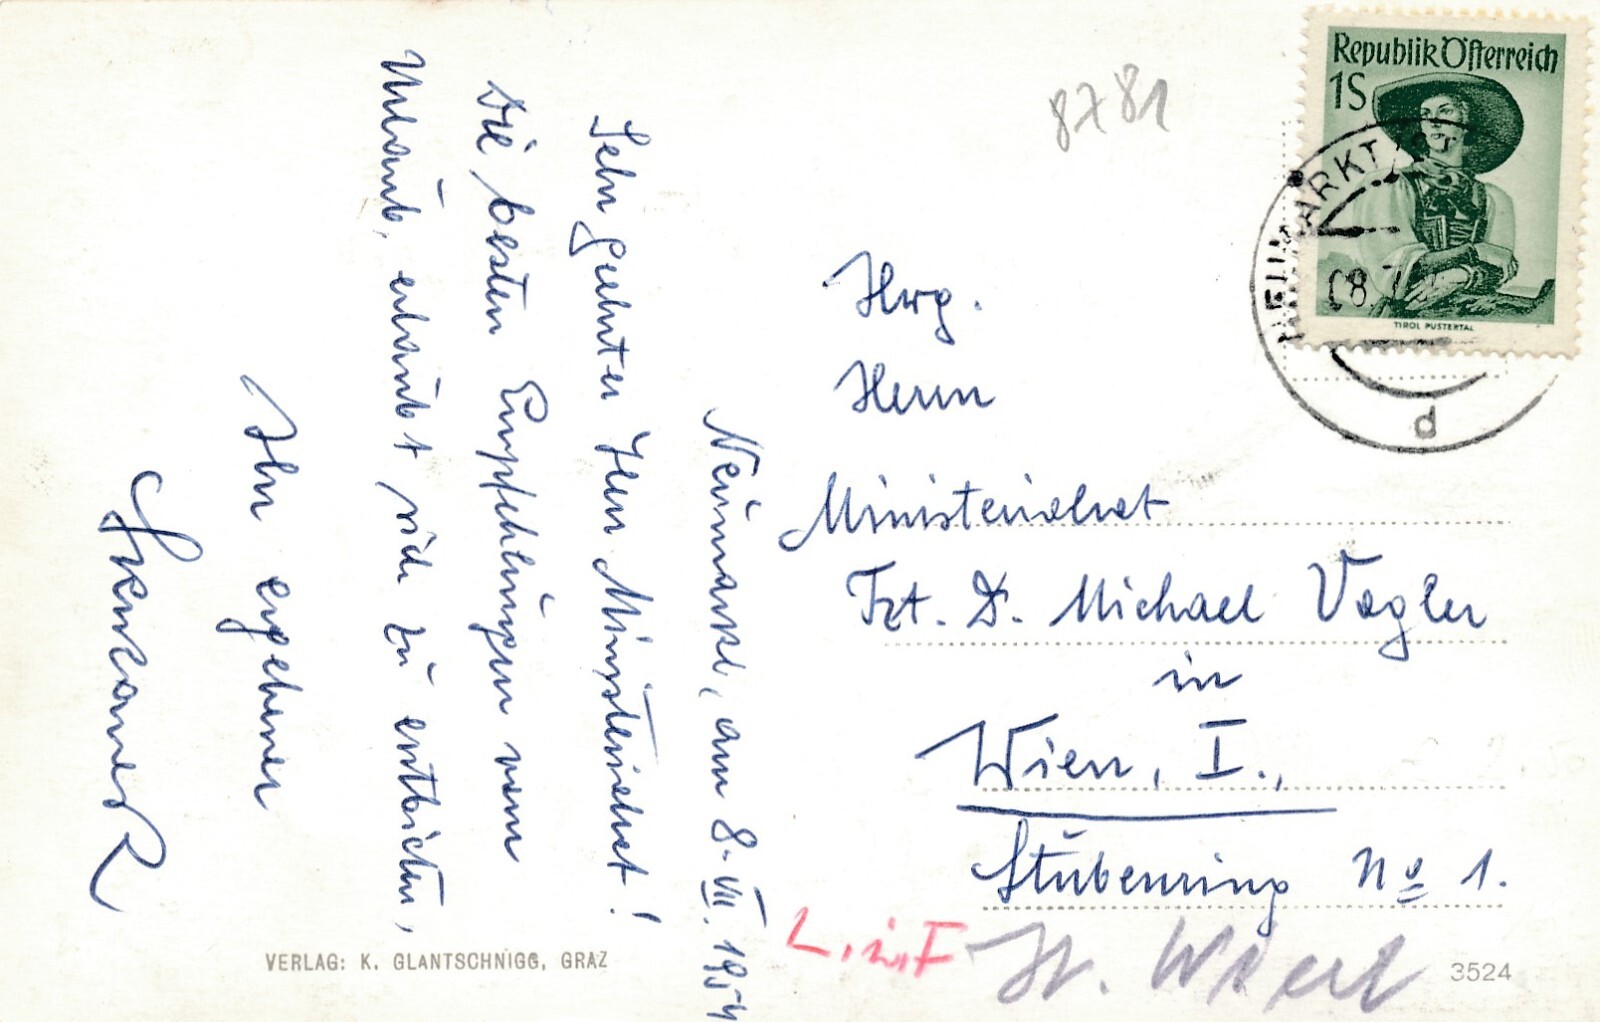 Neumarkt, am 8. VII. 1954
Sehr geehrter Herr Ministerialrat!
Die besten Empfehlungen vom
Urlaub, erlaubt sich zu entbieten,
Ihr ergebener
VERLAG: K. GLANTSCHNIGG, GRAZ
8781
Republik Österreich
1S
TIROL PUSTERTAL
NEUMARKT
8. 7.
d
Hwg.
Herrn
Ministerialrat
Tzt. D. Michael Vogler
in
Wien, I.,
Stubenring No 1.
3524